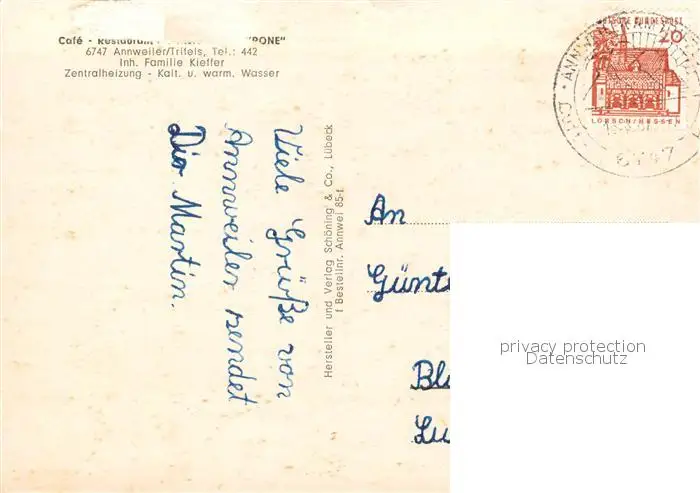 Café - Restaurant KRONE"
6747 Annweiler/Trifels, Tel.: 442
Inh. Familie Kieffer
Zentralheizung - Kalt. u. warm. Wasser
Viele Grüße von
Annweiler sendet
Dir Martin.
Hersteller und Verlag Schöning & Co., Lübeck
f Bestellnr. Annwei 85-f.
DEUTSCHE BUNDESPOST
20
LORSCH/HESSEN
6747
An
Günte
Bl
Lu
privacy protection
Datenschutz